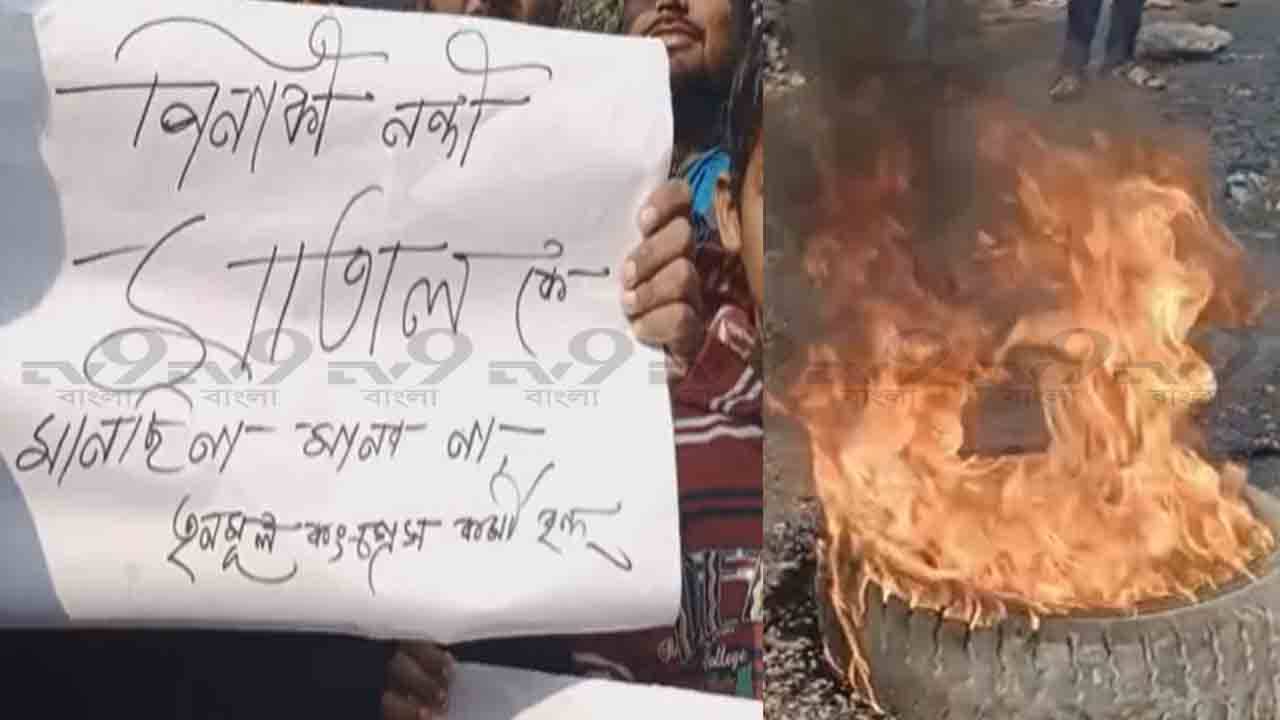 পিনাকী নন্দী
মাতাল কে
মানছিনা মানব না,
তৃনমূল কংগ্রেস কর্মী বৃন্দ
TV9 বাংলা TV9 বাংলা TV9 বাংলা TV9 বাংলা TV9 বাংলা TV9 বাংলা TV9 বাংলা TV9 বাংলা
College